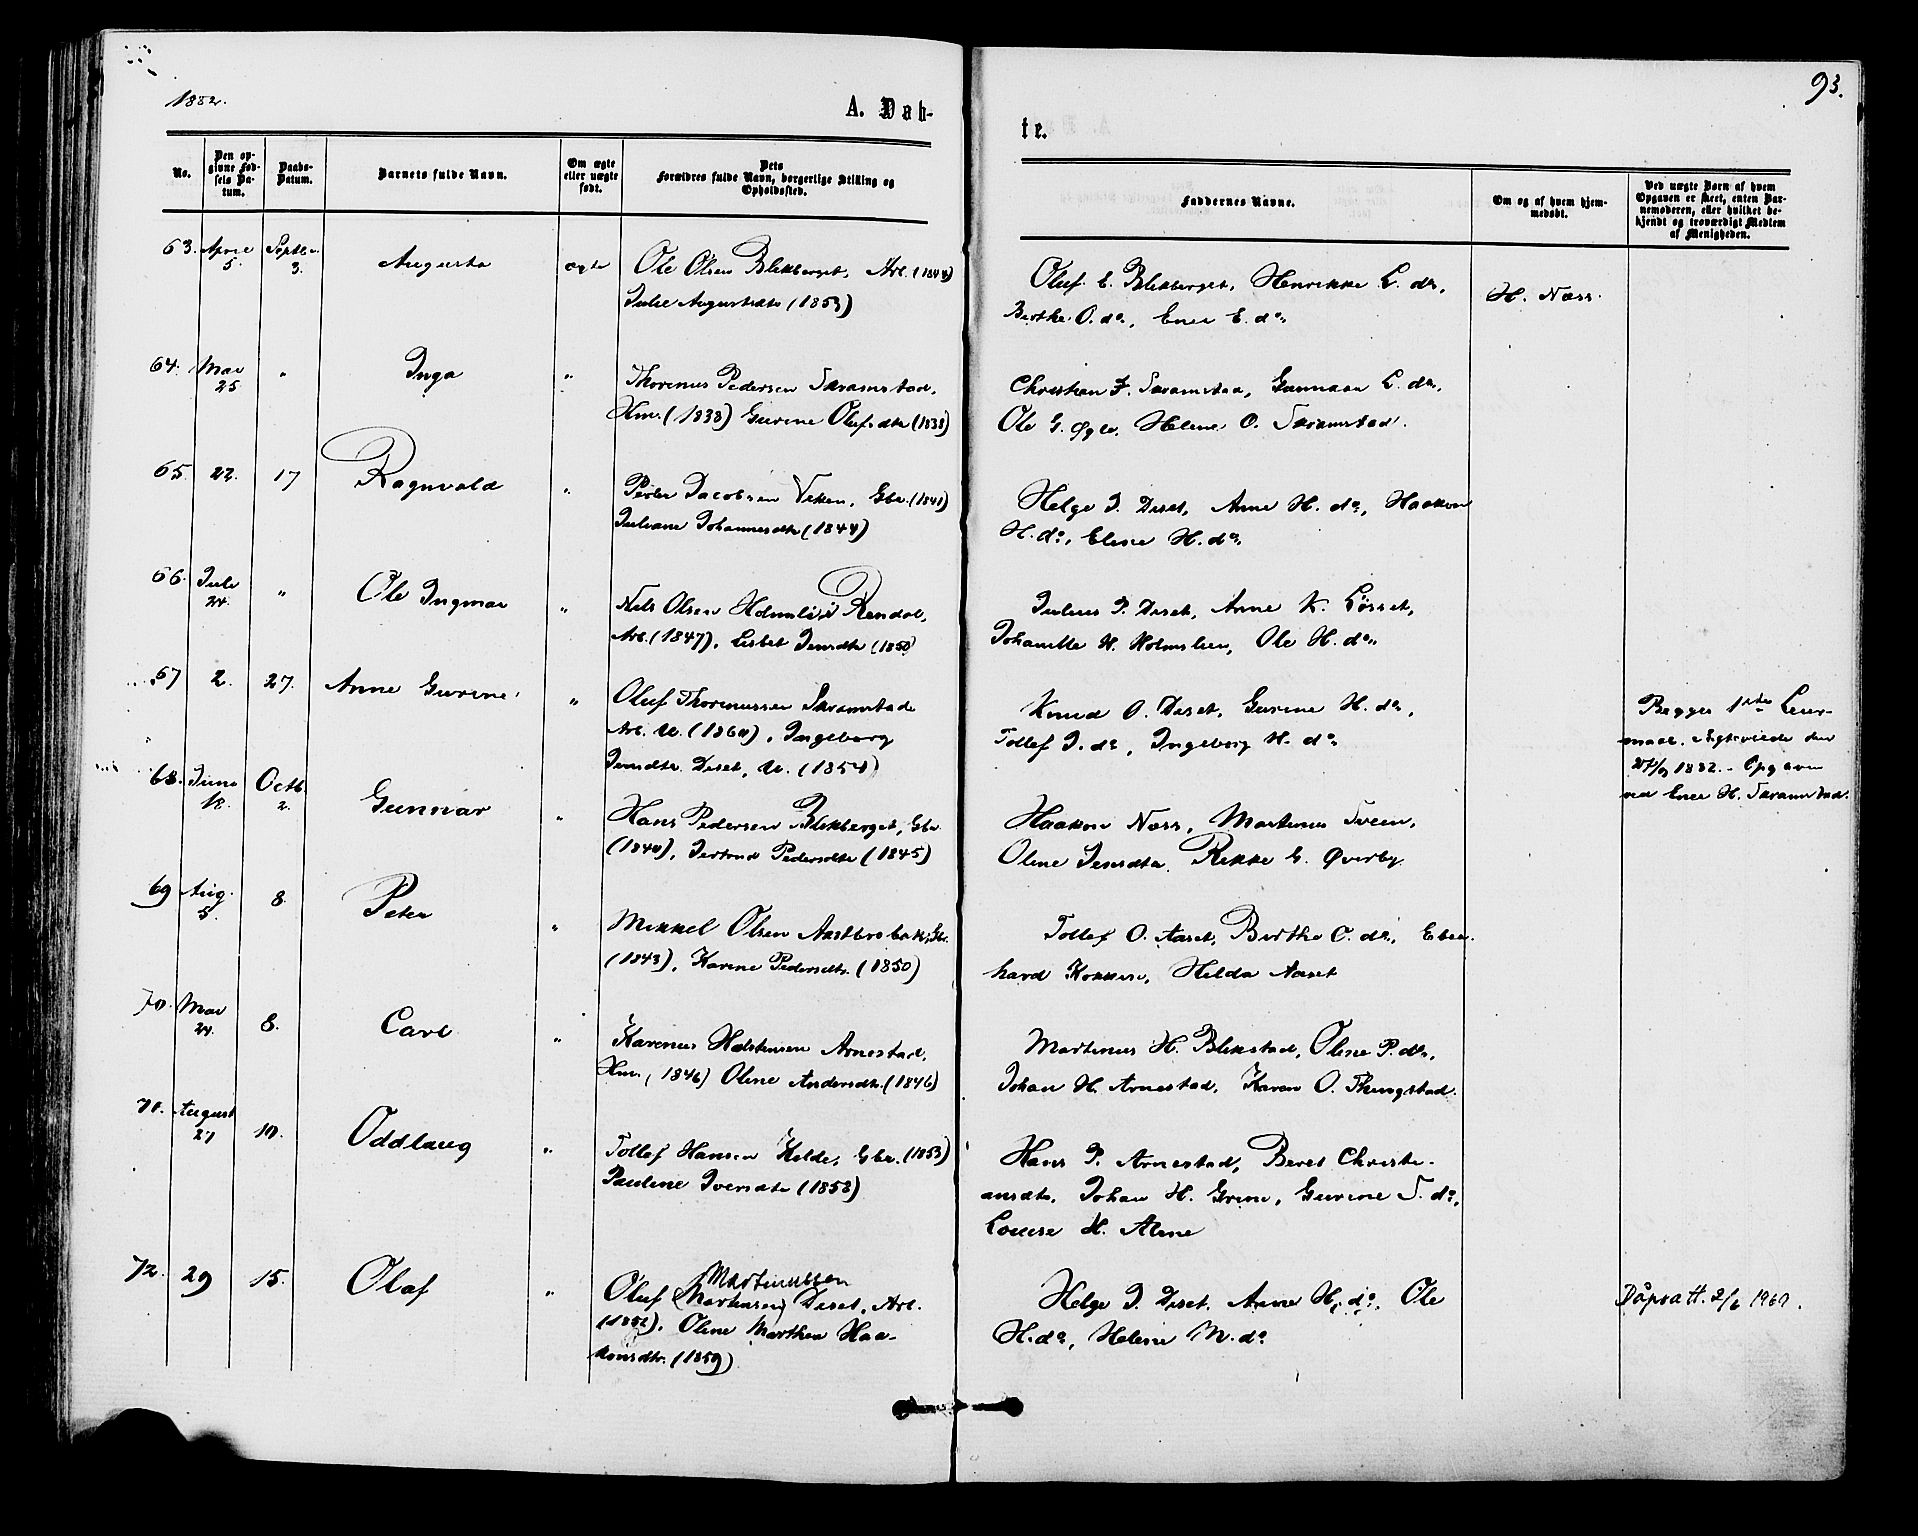 1882.
A. Døb-
te.
93.
No.
Den op-
givne Fød-
sels Da-
tum.
Daabs-
Datum.
Barnets fulde Navn.
Om ægte
eller uægte
født.
Dets
Forældres fulde Navn, borgerlige Stilling og
Opholdssted.
Faddernes Navne.
Om og af hvem hjem-
medøbt.
Ved uægte Børn af hvem
Opgaven er skeet, enten Bar-
nemoderen, eller hvilket be-
kjendt og troværdigt Medlem
af Menigheden.
63. April 5. Septbr. 3. Augusta ægte Ole Olsen Blikberget, Arb. (1844)
Julie Augustsdtr (1853)
Oluf E. Blikberget, Henrikke L. do,
Berthe O. do, Enei E. do
H. Næss.
64. Mai 25 " Inga " Thorinus Pedersen Skramstad,
Hm. (1838) Gurine Olufsdtr (1838)
Christian F. Skramstad, L. do,
Ole G. Øgle, Helene O. Skramstad.
65. 22. 17 Ragnvald " Peder Jacobsen Viken, Gbr. (1841)
Juliane Johannesdtr (1844)
Helge J. Diset, Anne H. do, Haakon
H. do, Eline H. do
66. Juli 24. " Ole Ingmar " Nils Olsen Holmlien i Rendal,
Arb. (1847), Lisbet Jensdtr (1850)
Julius P. Diset, Anne K. Løsset,
Johanette H. Holmlien, Ole H. do
67 2. 27. Anne Gurine " Oluf Thorinussen Skramstad
Arb. U. (1860), Ingeborg
Jensdtr. Diset, U. (1854)
Knud O. Diset, Gurine H. do,
Tollef J. do, Ingeborg H. do
Begges 1ste Leier-
maal. Ægteviede den
1882. - Opgaven
ved Enei H. Skramstad.
68. Juni 18. Octb. 2. Gunnar " Hans Pedersen Blikberget, Gbr.
(1840), Jertrud Pedersdtr (1845)
Haakon Næss, Martinus Sveen,
Oline Jensdtr. Rikke G. Øverby
69 Aug. 5. 8. Peter " Mikkel Olsen Aastbrobak, Gbr.
(1843), Karine Pedersdtr. (1850)
Tollef O. Aaset, Berthe O. do, Eber-
hard Kokkin, Hilda Aaset
70. Mai 24. 8. Carl " Karinus Halstensen Arnestad,
Hm. (1846) Oline Andersdtr. (1846)
Martinus H. Blikstad, Oline P. do,
Johan H. Arnestad, Karen O. Thingstad.
71. August 27 10. Oddlaug " Tollef Hansen Kilde, Gbr. (1853)
Pauline Iversdtr (1858)
Hans P. Arnestad, Beret Christi-
ansdtr, Johan H. Grini, Gurine T. do,
Louise H. Alme
72. 29 15. Olaf " Oluf (Martinsen) Diset, Arb.
Martinussen
(1852), Oline Marthea Haa-
konsdtr. (1859)
Helge J. Diset, Anne H. do, Ole
H. do, Helene M. do
Dåpsatt. 2/6 1960.